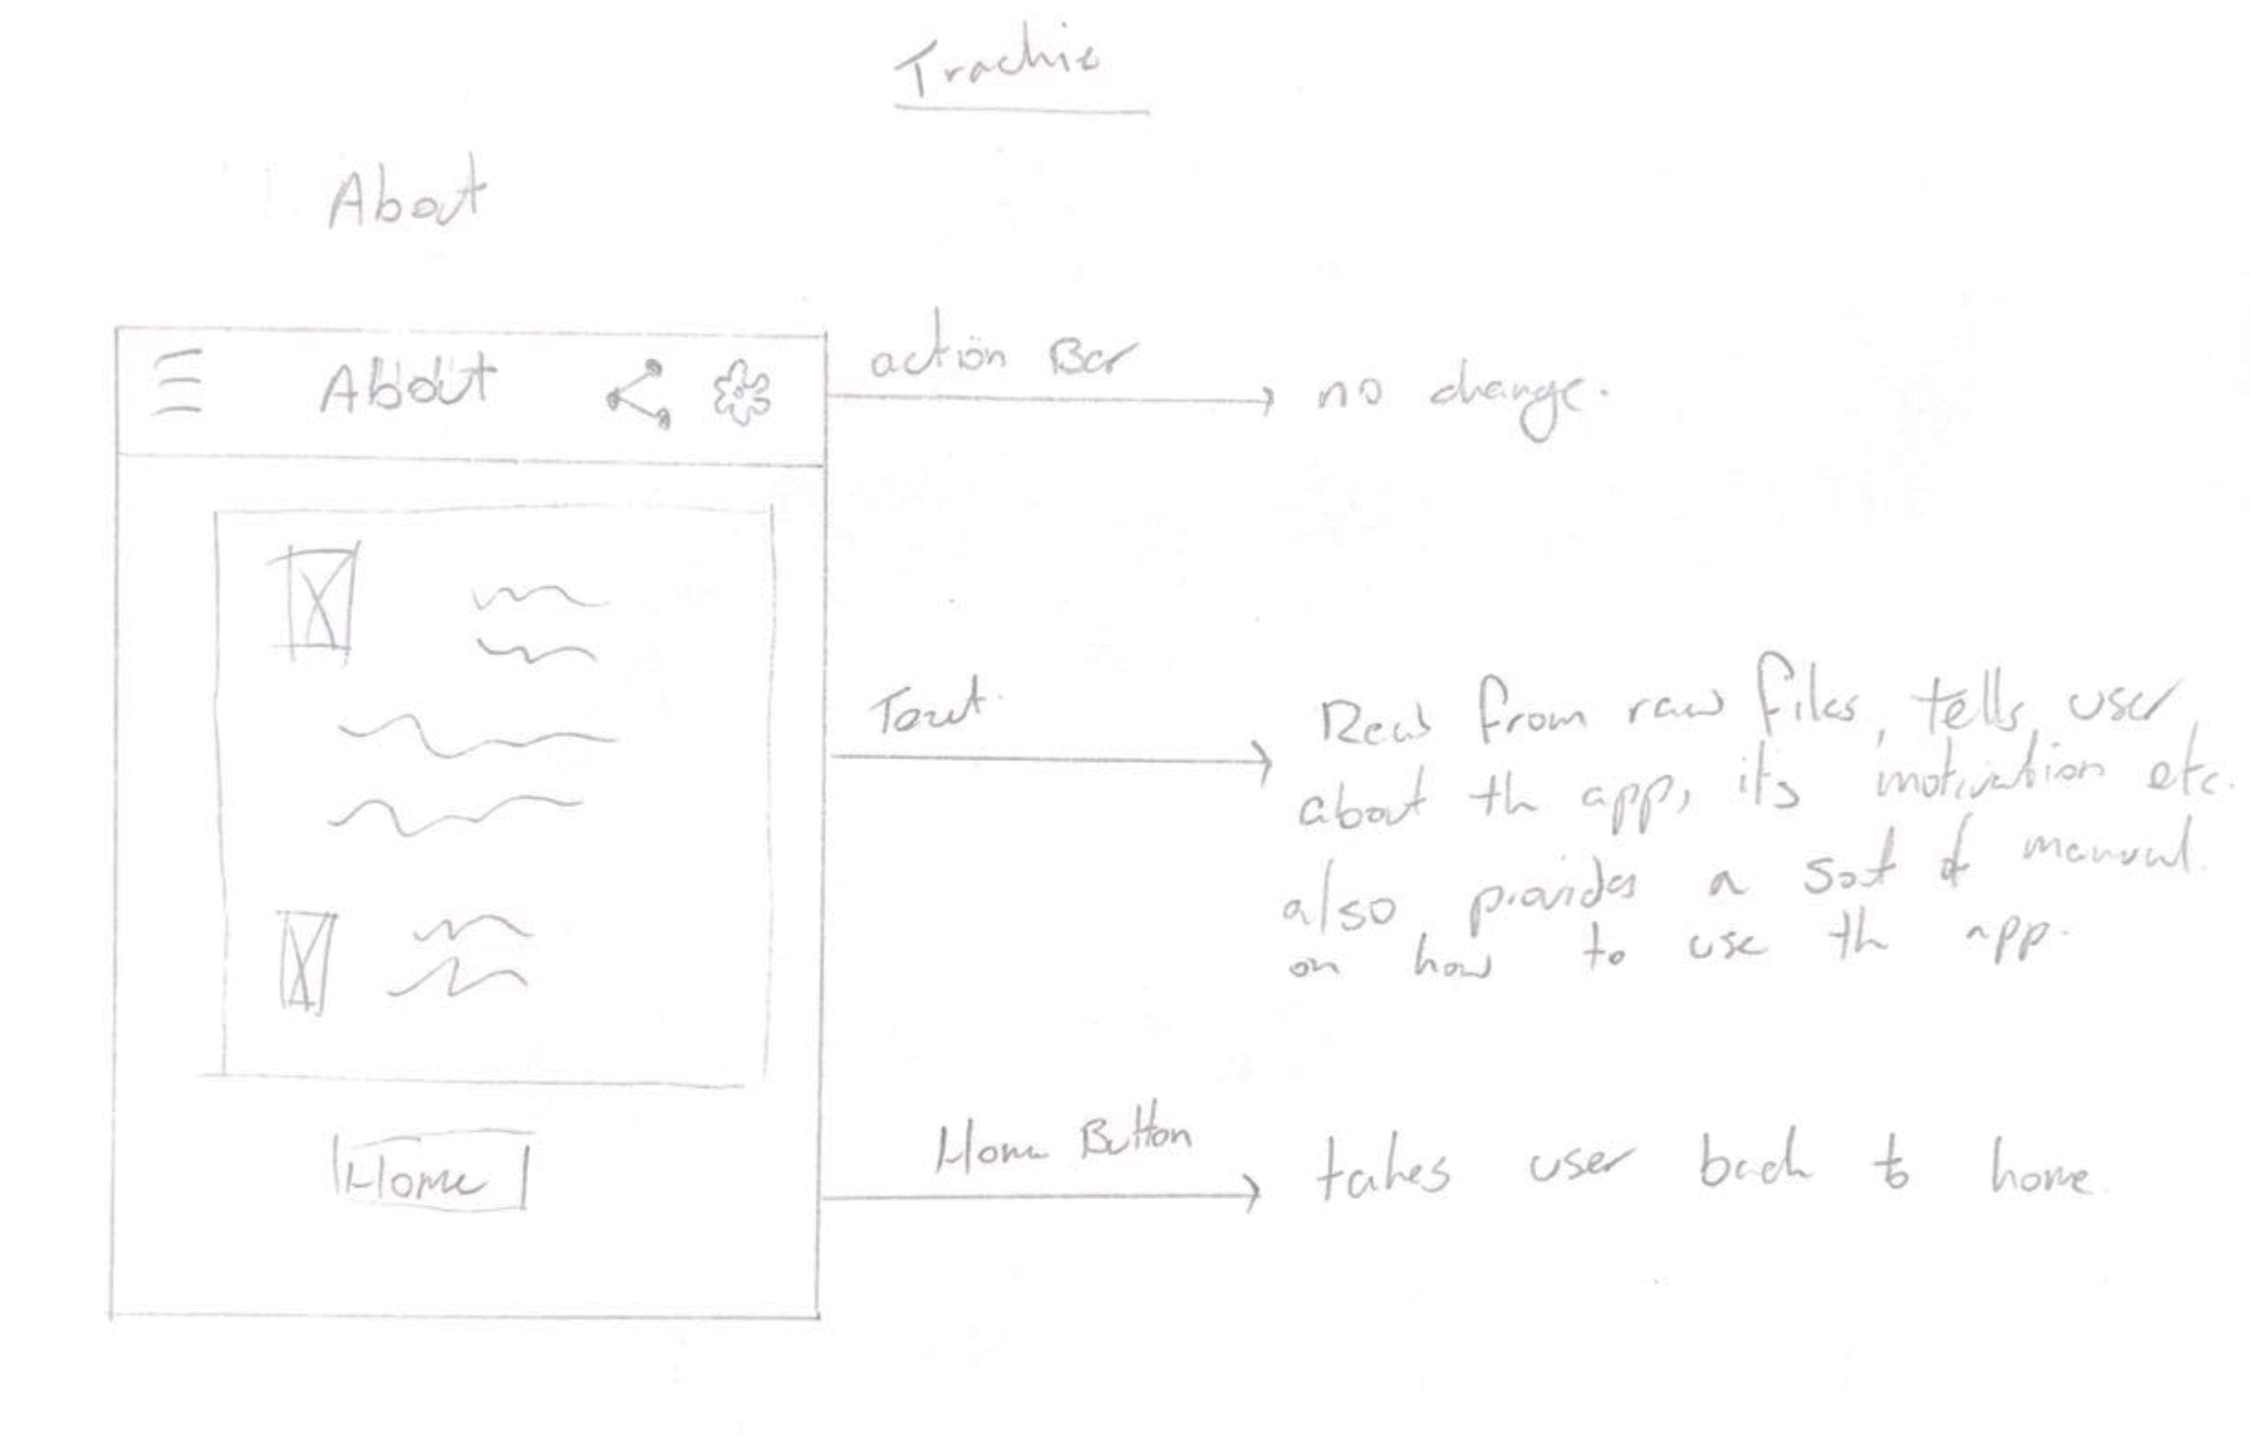 Trackie
About
About
action Bar
no change.
Text.
Read from raw files, tells user
about th app, its motivation etc.
also provides a sort of manual
on how to use th app.
Home
Home Button
takes user back to home